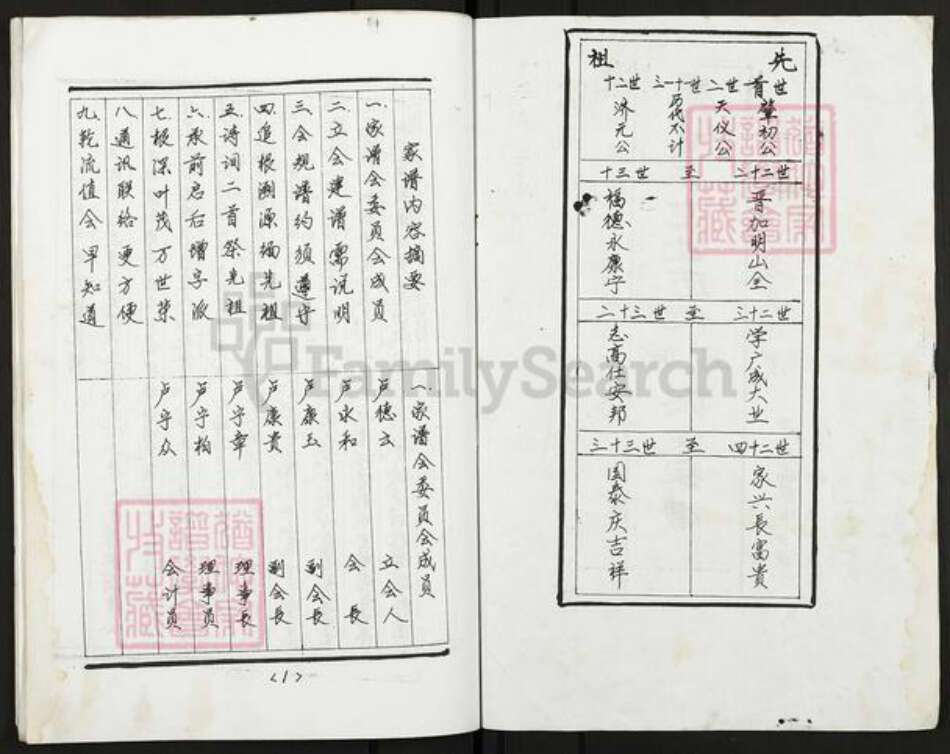 先祖
首世 肇初公
二世 天仪公
三一十世 历代不计
十二世 济元公
十三世 至 二十二世
福德永康宁
晋加明山全
二十三世 至 三十二世
志高仕安邦
学广成大业
三十三世 至 四十二世
国泰庆吉祥
家兴長富貴
家谱内容摘要
一、家谱会委员会成员
二、立会建谱需说明
三、会规谱约须遵守
四、追根溯源缅先祖
五、诗词二首祭先祖
六、承前启后增字派
七、根深叶茂万世荣
八、通讯联络更方便
九、乾流值会早知道
一、家谱会委员会成员
卢德云 立会人
卢永和 会長
卢康玉 副会長
卢康貴 副会長
卢宇章 理事長
卢宇柏 理事员
卢宇众 会计员
<1>
FamilySearch